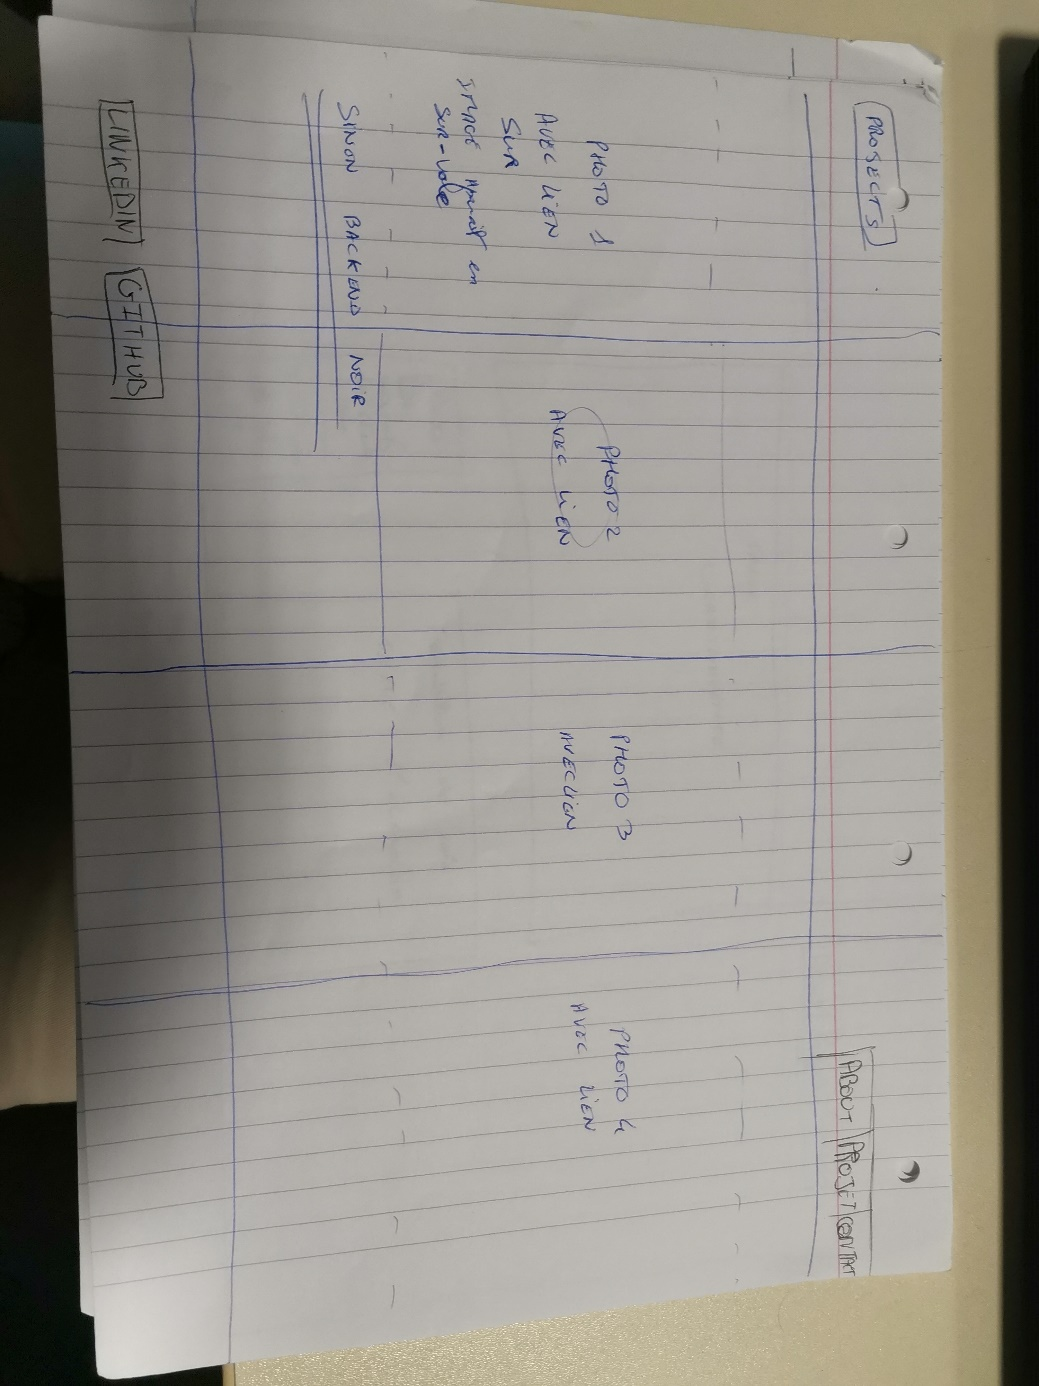 PROJECTS
ABOUT PROJET CONTACT
PHOTO 1
AVEC LIEN
SUR
IMAGE Apparaît en
SUR-Vole
SINON BACKEND NOIR
PHOTO 2
AVEC LIEN
PHOTO 3
AVEC LIEN
PHOTO 4
AVEC LIEN
LINKEDIN GITHUB